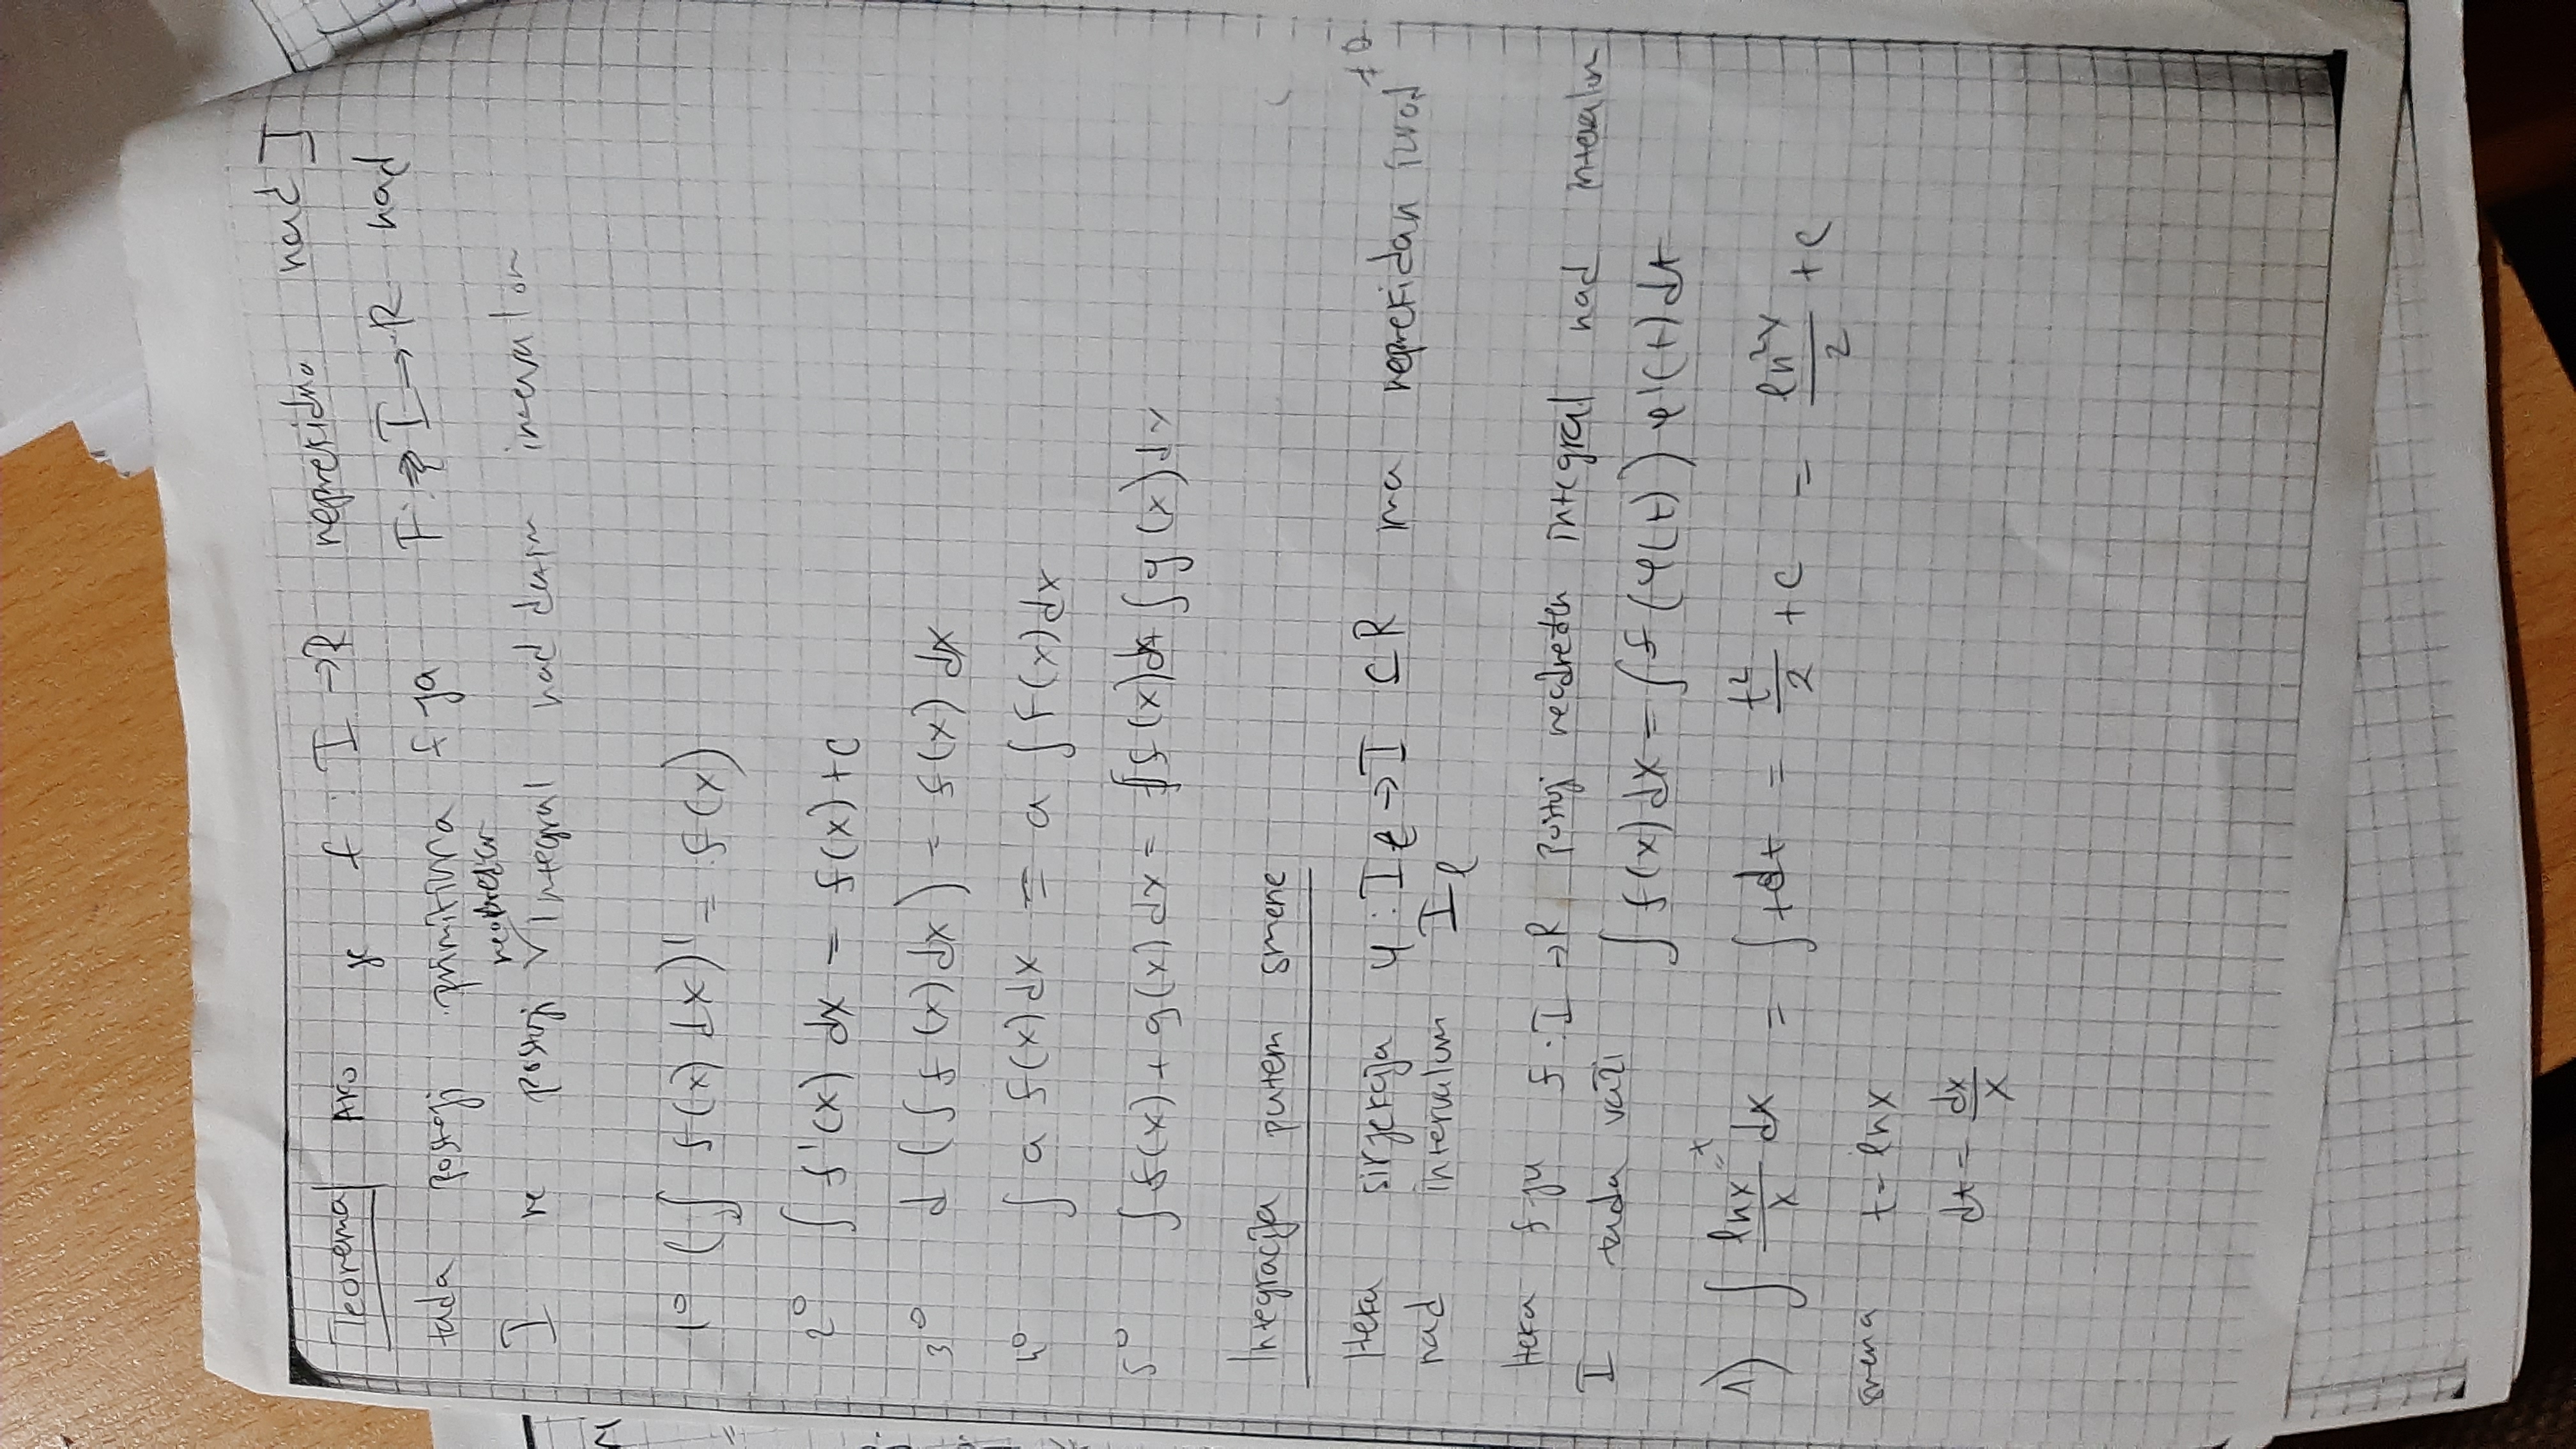 Teorema Ako je f : I → R neprekidna nad I
tada postoji primitivna f ja F : I → R nad
neodređen
I te postoji √ Integral nad datim intervalom
1° (∫ f(x) dx)' = f(x)
2° ∫ f'(x) dx = f(x) + c
3° d (∫ f (x) dx) = f(x) dx
4° ∫ a f(x) dx = a ∫ f(x) dx
5° ∫ f(x) + g(x) dx = ∫ f(x) dx + ∫ g(x) dx
Integracija putem smene
Neka sirjekcija φ : I t → I ⊆ R ima neprekidan izvod ≠ 0
nad intervalom I t
Neka f ju f : I → R postoji neodređen integral nad intervalom
I tada važi ∫ f(x) dx = ∫ f (φ(t)) φ'(t) dt
1) ∫ lnx = t / x dx = ∫ t dt = t² / 2 + c = ln²x / 2 + c
smena t = lnx
dt = dx / x